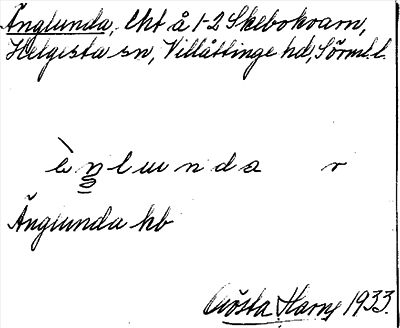 Änglunda, lht å 1-2 Skebokvarn,
Helgesta sn, Villåttinge hd, Södml.
ὲnlunda v
Änglunda hb
Gösta Harne 1933.